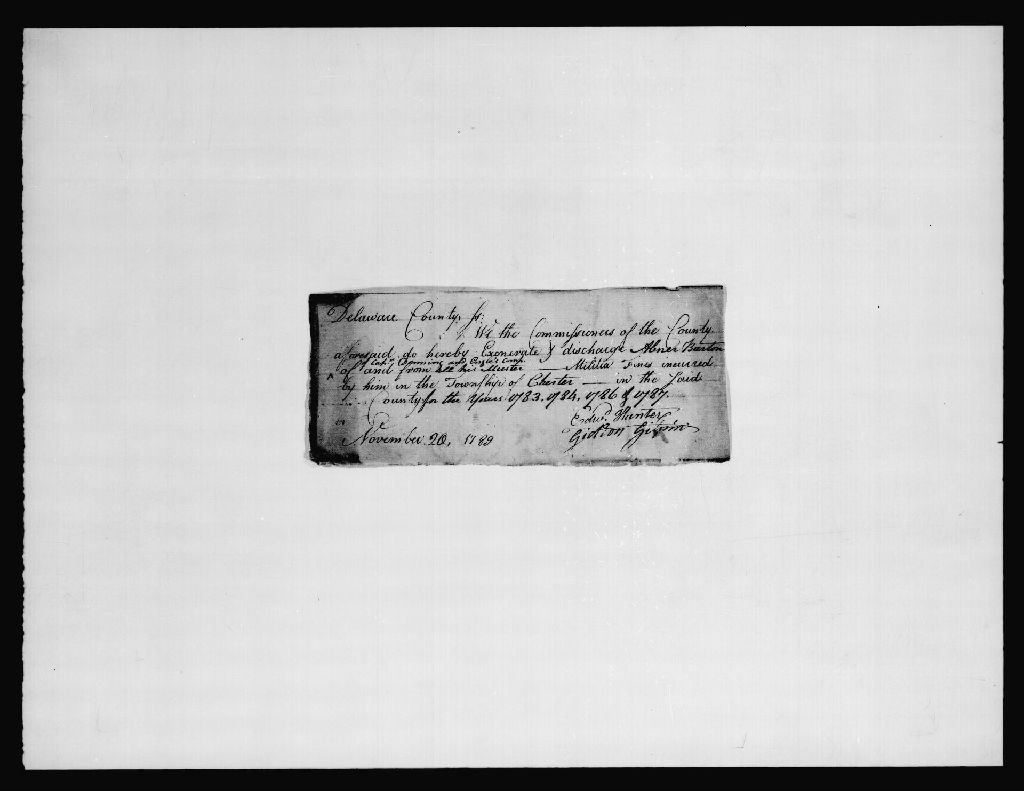 Delaware County, ss:
We the Commissioners of the County
aforesaid, do hereby Exonerate & discharge Abner Barton
Capt. and Comp.
of and from all his Muster — Militia Fines incurred
by him in the Township of Chester — in the Said
County for the Years 1783, 1784, 1786 & 1787.
Edwd. Hunter
November 20, 1789
Gideon